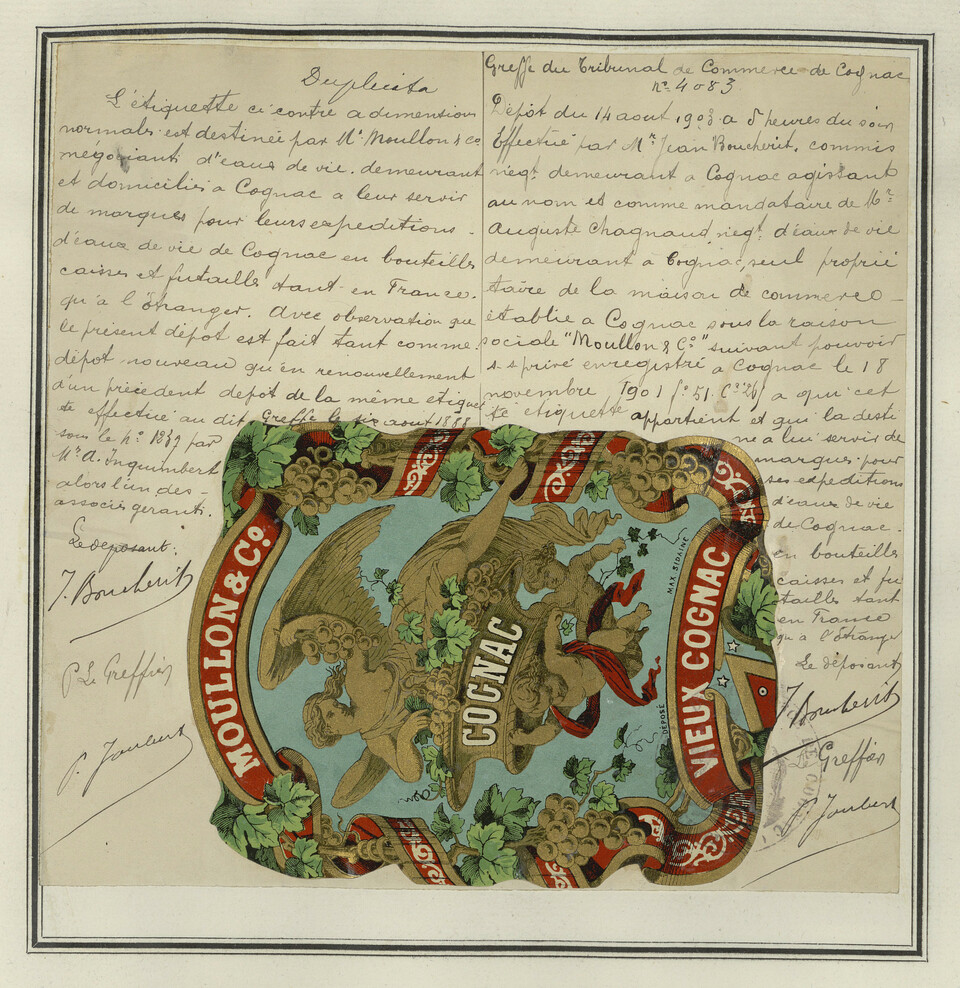 Duplicata
L'étiquette ci contre a dimensions
normales est destinée par Mr. Moullon & co
négociants d'eaux de vie demeurant
et domiciliés a Cognac a leur servir
de marques pour leurs expeditions
d'eaux de vie de Cognac en bouteilles
caisses et futailles tant en France
qu'a l'étranger. Avec observation que
le présent dépot est fait tant comme
dépot nouveau qu'en renouvellement
d'un précédent depot de la même étiquet
te effectué au dit Greffe le six aout 1888
sous le no. 1839 par
Mr. A. Inquimbert
alors l'un des
associés gerants.
Le déposant:
J. Boucherit
P Le Greffier
P. Joubert
Greffe du Tribunal de Commerce de Cognac
no. 4083
Dépôt du 14 aout 1903 a 5 heures du soir
Effectué par Mr Jean Boucherit, commis
négt. demeurant a Cognac agissant
au nom et comme mandataire de Mr
Auguste Chagnaud, négt. d'eaux de vie
demeurant a Cognac, seul proprié
taire de la maison de commerce
établie a Cognac sous la raison
sociale "Moullon & Co" suivant pouvoir
s-s privé enregistré a Cognac le 18
novembre 1901 fo. 51. a qui cet
te etiquette appartient et qui la desti
ne a lui servir de
marques pour
ses expeditions
d'eaux de vie
de Cognac
en bouteilles
caisses et fu
tailles tant
en France
qu'a l'étranger
Le déposant
J. Boucherit
Greffier
P. Joubert
MOULLON & Co
COGNAC
VIEUX COGNAC
MAX SIDAINE
DÉPOSÉ